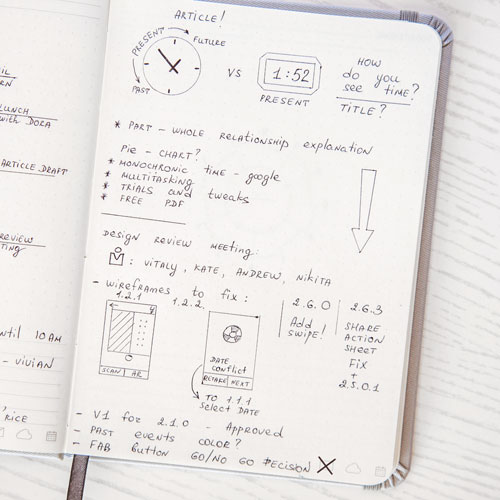 ARTICLE!
PRESENT
FUTURE
PAST
VS
1:52
PRESENT
HOW
do you
see time?
TITLE?
* PART - WHOLE RELATIONSHIP EXPLANATION
Pie - CHART?
* MONOCHRONIC TIME - google
* MULTITASKING
* TRIALS and tweaks
* FREE PDF
DESIGN REVIEW MEETING:
: VITALY, KATE, ANDREW, NIKITA
- WIREFRAMES TO FIX:
1.2.1
1.2.2.
SCAN AR
DATE
conflict
RETAKE NEXT
TO 1.1.1
Select DATE
2.6.0
Add
SWIPE!
2.6.3
SHARE
ACTION
SHEET
FIX
+
2.5.0.1
- V1 for 2.1.0 - Approved
- PAST events COLOR?
- FAB button GO/NO GO DECISION X
LUNCH
with DORA
ARTICLE DRAFT
REVIEW
10 AM
- VIVIAN